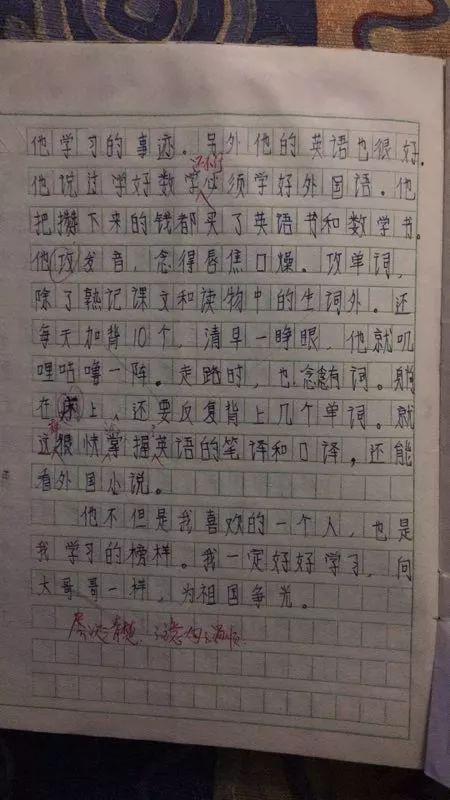 他学习的事迹。另外他的英语也很好.
他说过学好数学必须学好外国语。他
把攒下来的钱都买了英语书和数学书。
他攻发音，念得唇焦口燥。攻单词，
除了熟记课文和读物中的生词外。还
每天加背10个，清早一睁眼，他就叽
哩咕噜一阵。走路时，也念念有词。躺
在床上，还要反复背上几个单词。就
这很快掌握英语的笔译和口译，还能
看外国小说。
他不但是我喜欢的一个人，也是
我学习的榜样。我一定好好学习，向
大哥哥一样，为祖国争光。
注意句